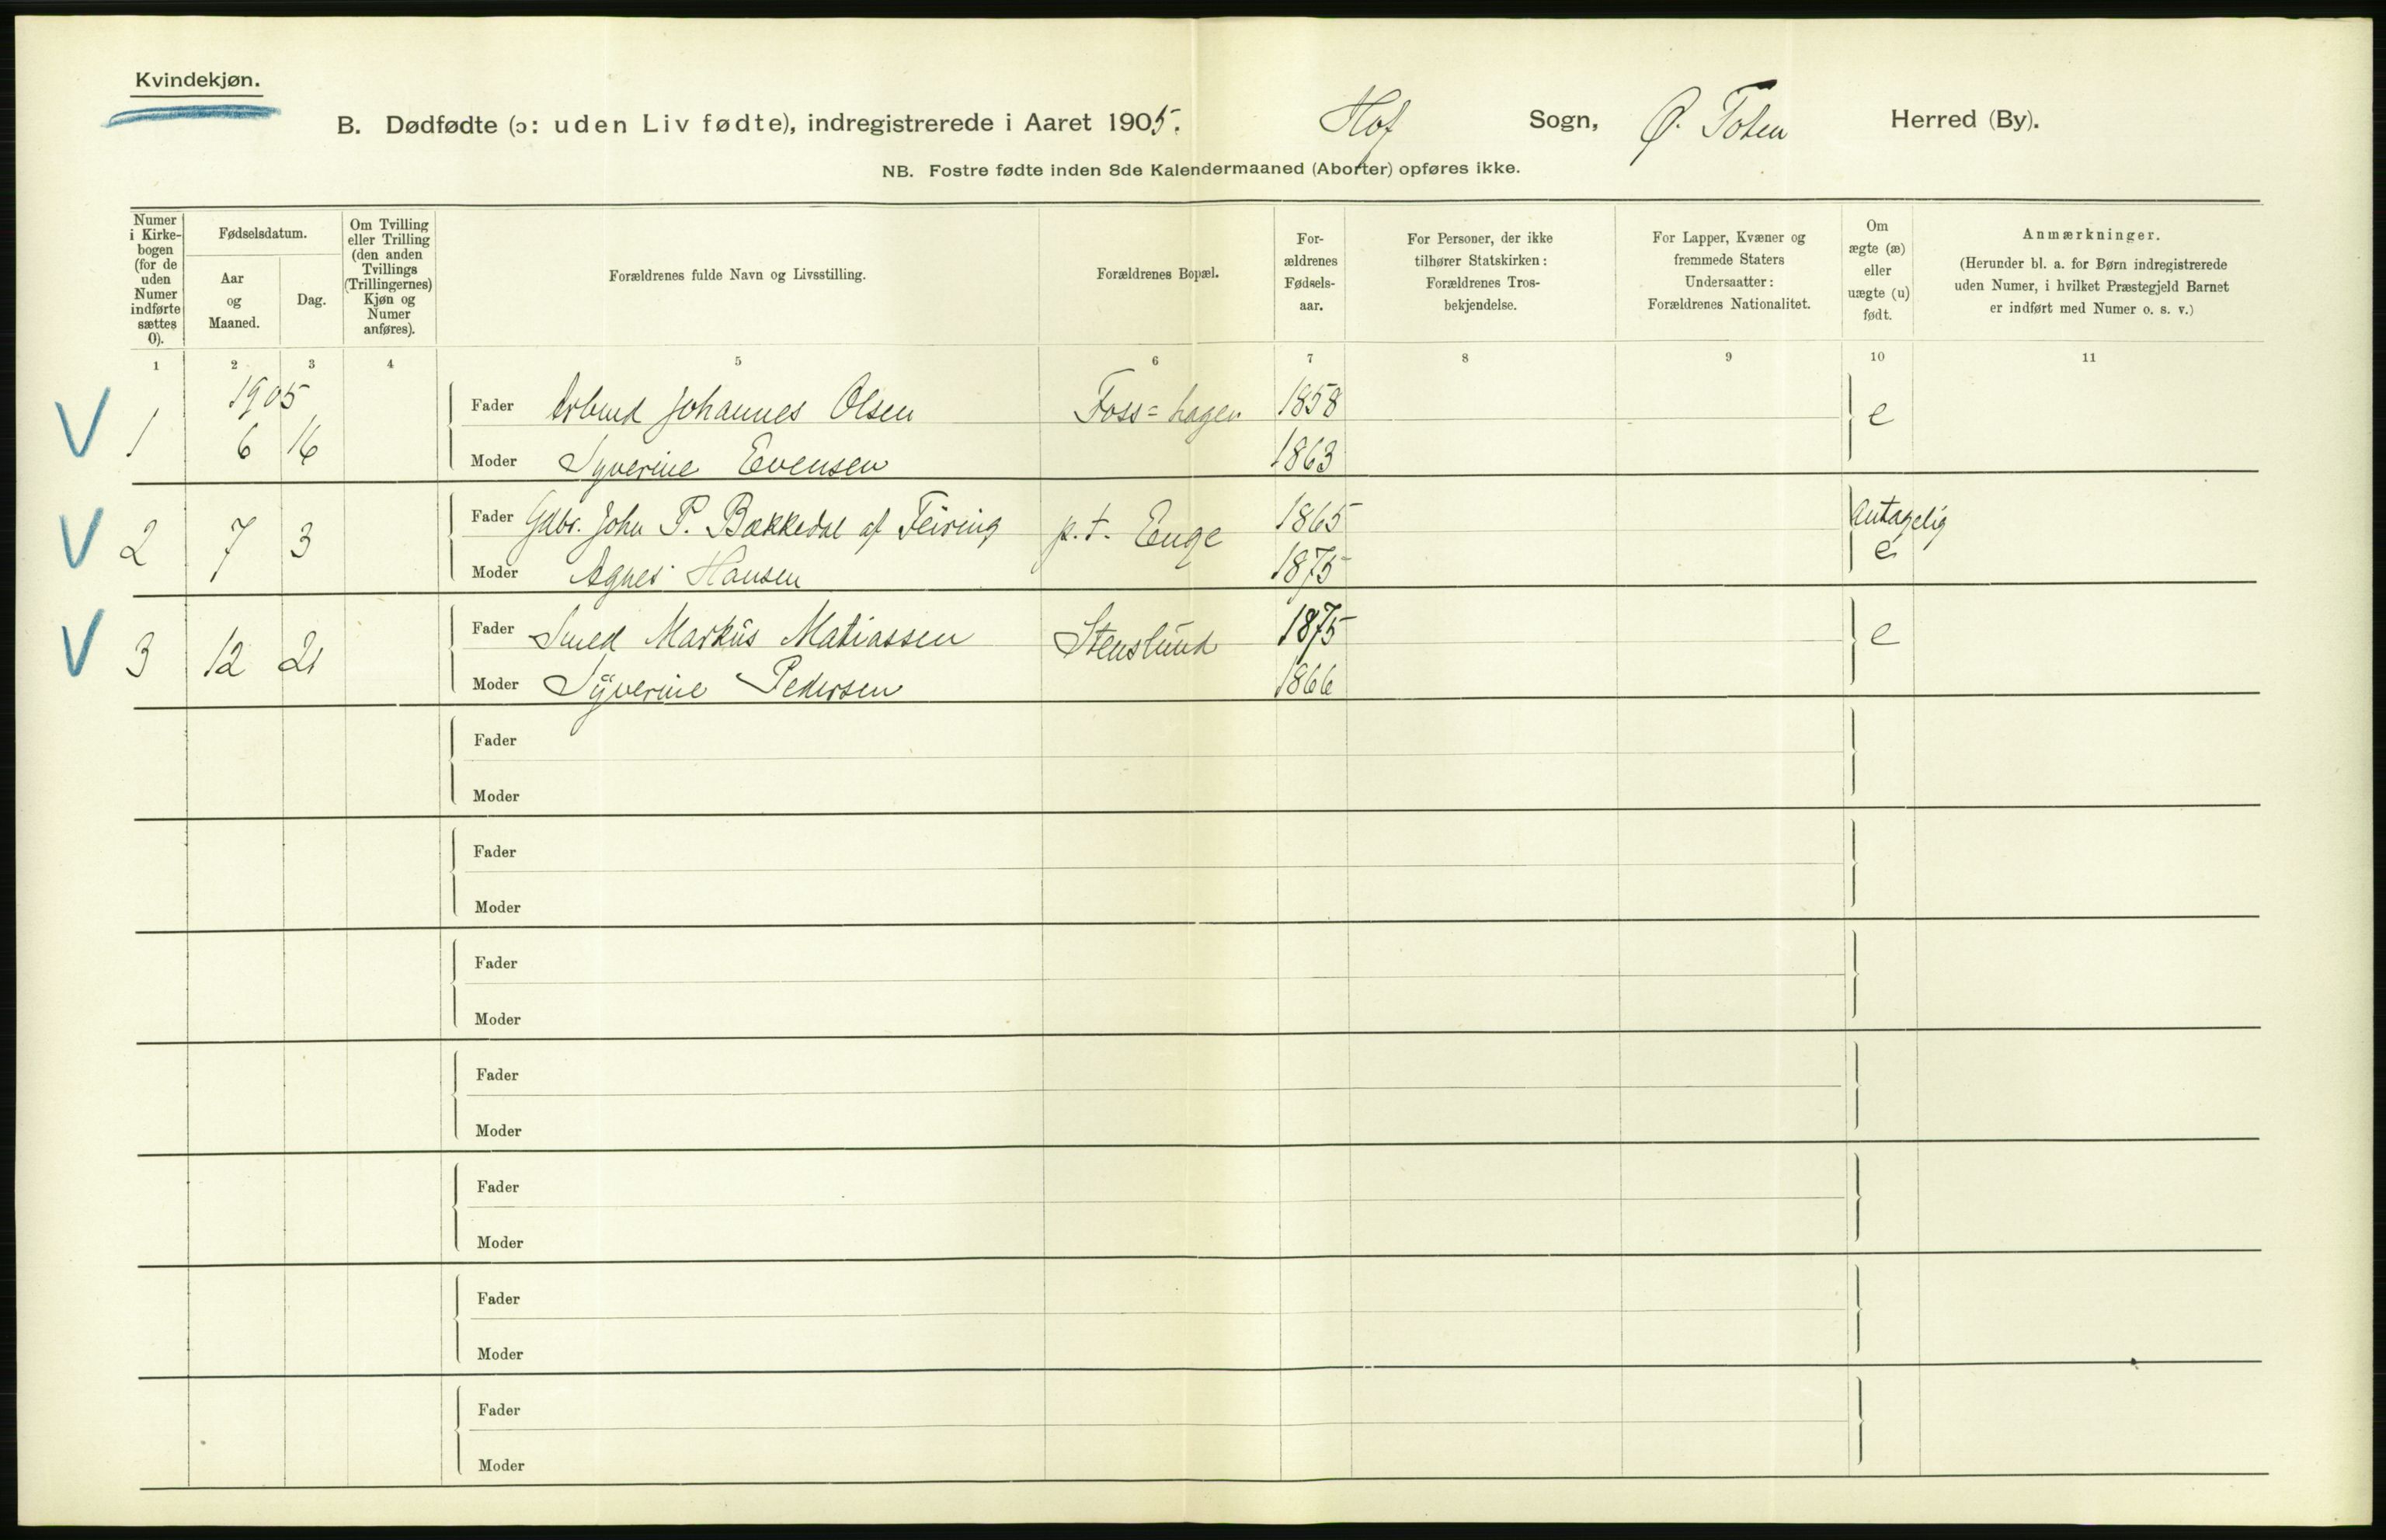 Kvindekjøn.
B. Dødfødte (ɔ: uden Liv fødte), indregistrerede i Aaret 1905. Hof Sogn, Ø. Toten Herred (By).
NB. Fostre fødte inden 8de Kalendermaaned (Aborter) opføres ikke.
Numer i Kirke-bogen (for de uden Numer indførte sættes 0).
Fødselsdatum.
Aar og Maaned.
Dag.
Om Tvilling eller Trilling (den anden Tvillings (Trillingernes) Kjøn og Numer anføres).
Forældrenes fulde Navn og Livsstilling.
Forældrenes Bopæl.
For-ældrenes Fødsels-aar.
For Personer, der ikke tilhører Statskirken: Forældrenes Tros-bekjendelse.
For Lapper, Kvæner og fremmede Staters Undersaatter: Forældrenes Nationalitet.
Om ægte (æ) eller uægte (u) født.
Anmærkninger.
(Herunder bl. a. for Børn indregistrerede uden Numer, i hvilket Præstegjeld Barnet er indført med Numer o. s. v.)
1 2 3 4 5 6 7 8 9 10 11
1905
V 1 6 16 Fader Arbmd Johannes Olsen Foss=hagen 1858 e
Moder Syverine Evensen 1863
V 2 7 3 Fader Gdbr. John P. Bækkedal af Feiring p.t. Enge 1865 Antagelig e
Moder Agnes Hansen 1875
V 3 12 21 Fader Smed Markus Matiassen Stenslund 1875 e
Moder Syverine Pedersen 1866
Fader
Moder
Fader
Moder
Fader
Moder
Fader
Moder
Fader
Moder
Fader
Moder
Fader
Moder